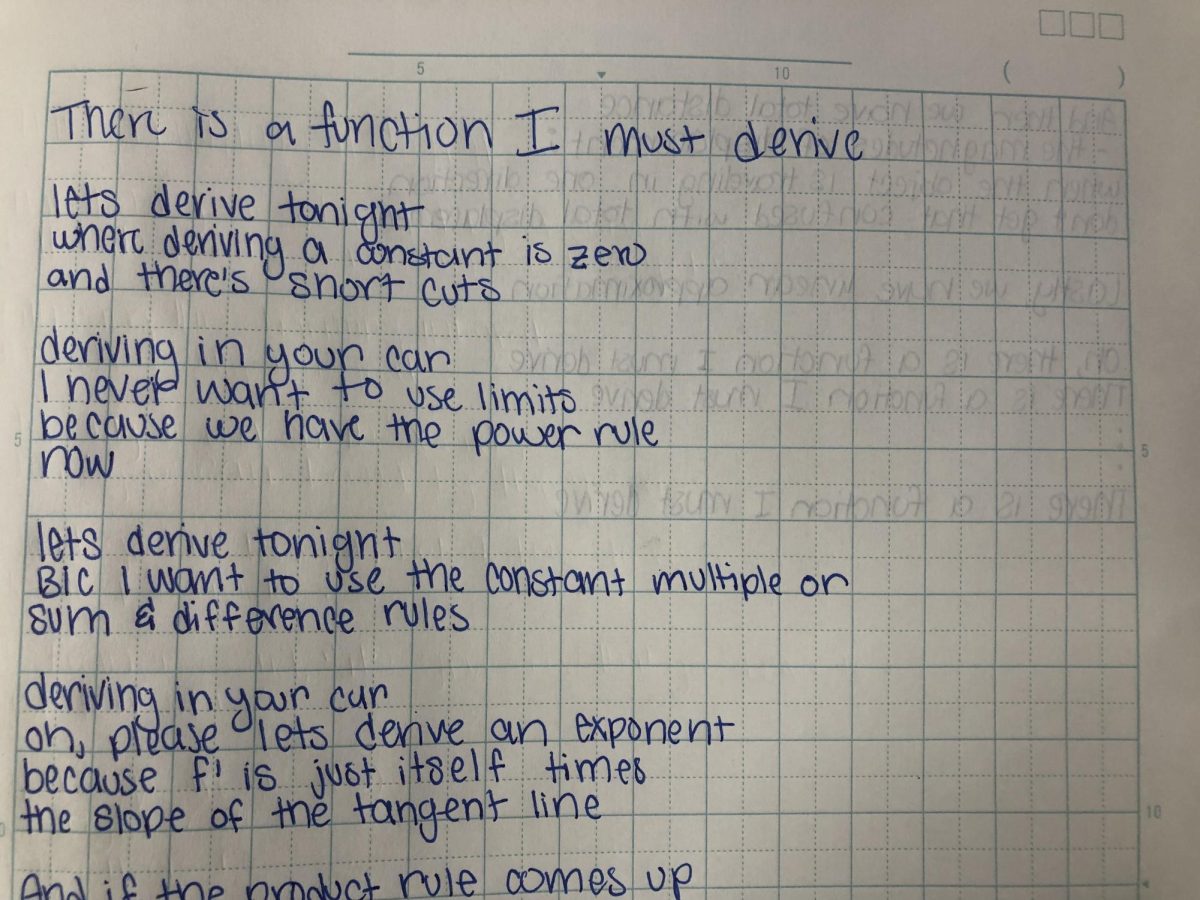 5
10
( )
There is a function I must derive
lets derive tonight
where deriving a constant is zero
and there's short cuts
deriving in your car
I never want to use limits
because we have the power rule
now
lets derive tonight
B/C I want to use the constant multiple or
sum & difference rules
deriving in your car
oh, please lets derive an exponent
because f' is just itself times
the slope of the tangent line
And if the product rule comes up
5
10
5